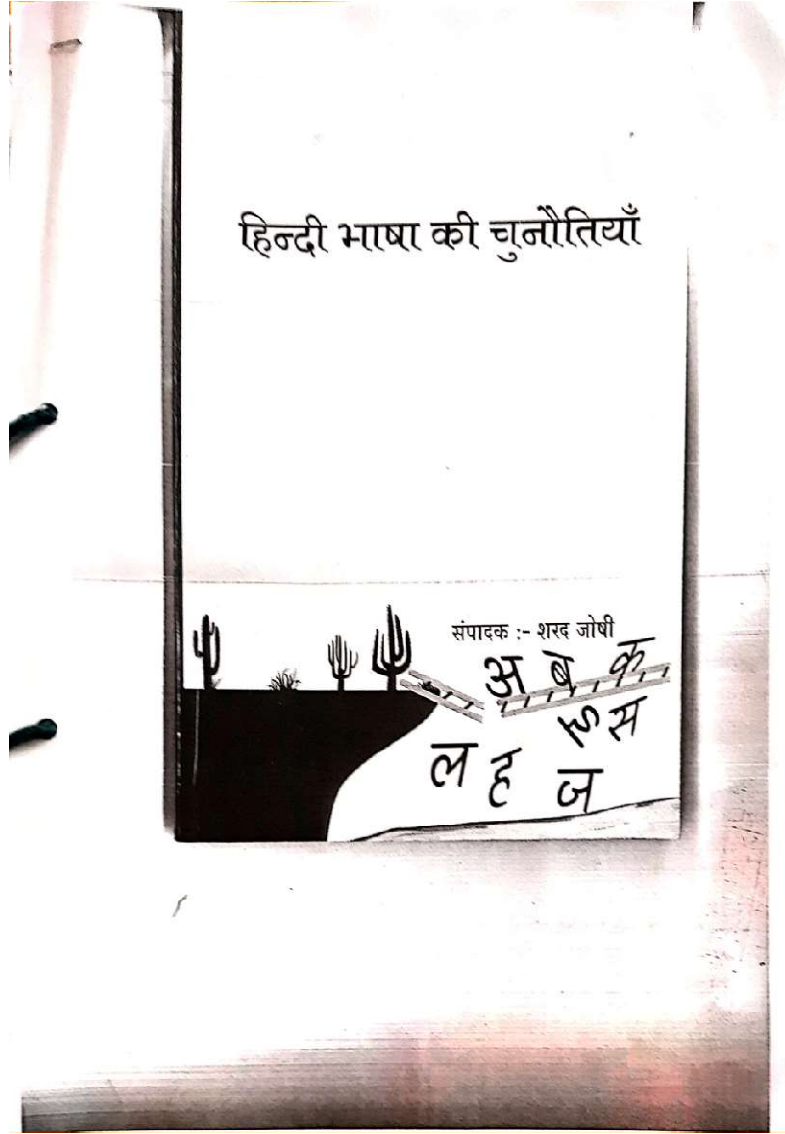 हिन्दी भाषा की चुनौतियाँ
संपादक :- शरद जोशी
अ ब क
स
ल ह ज